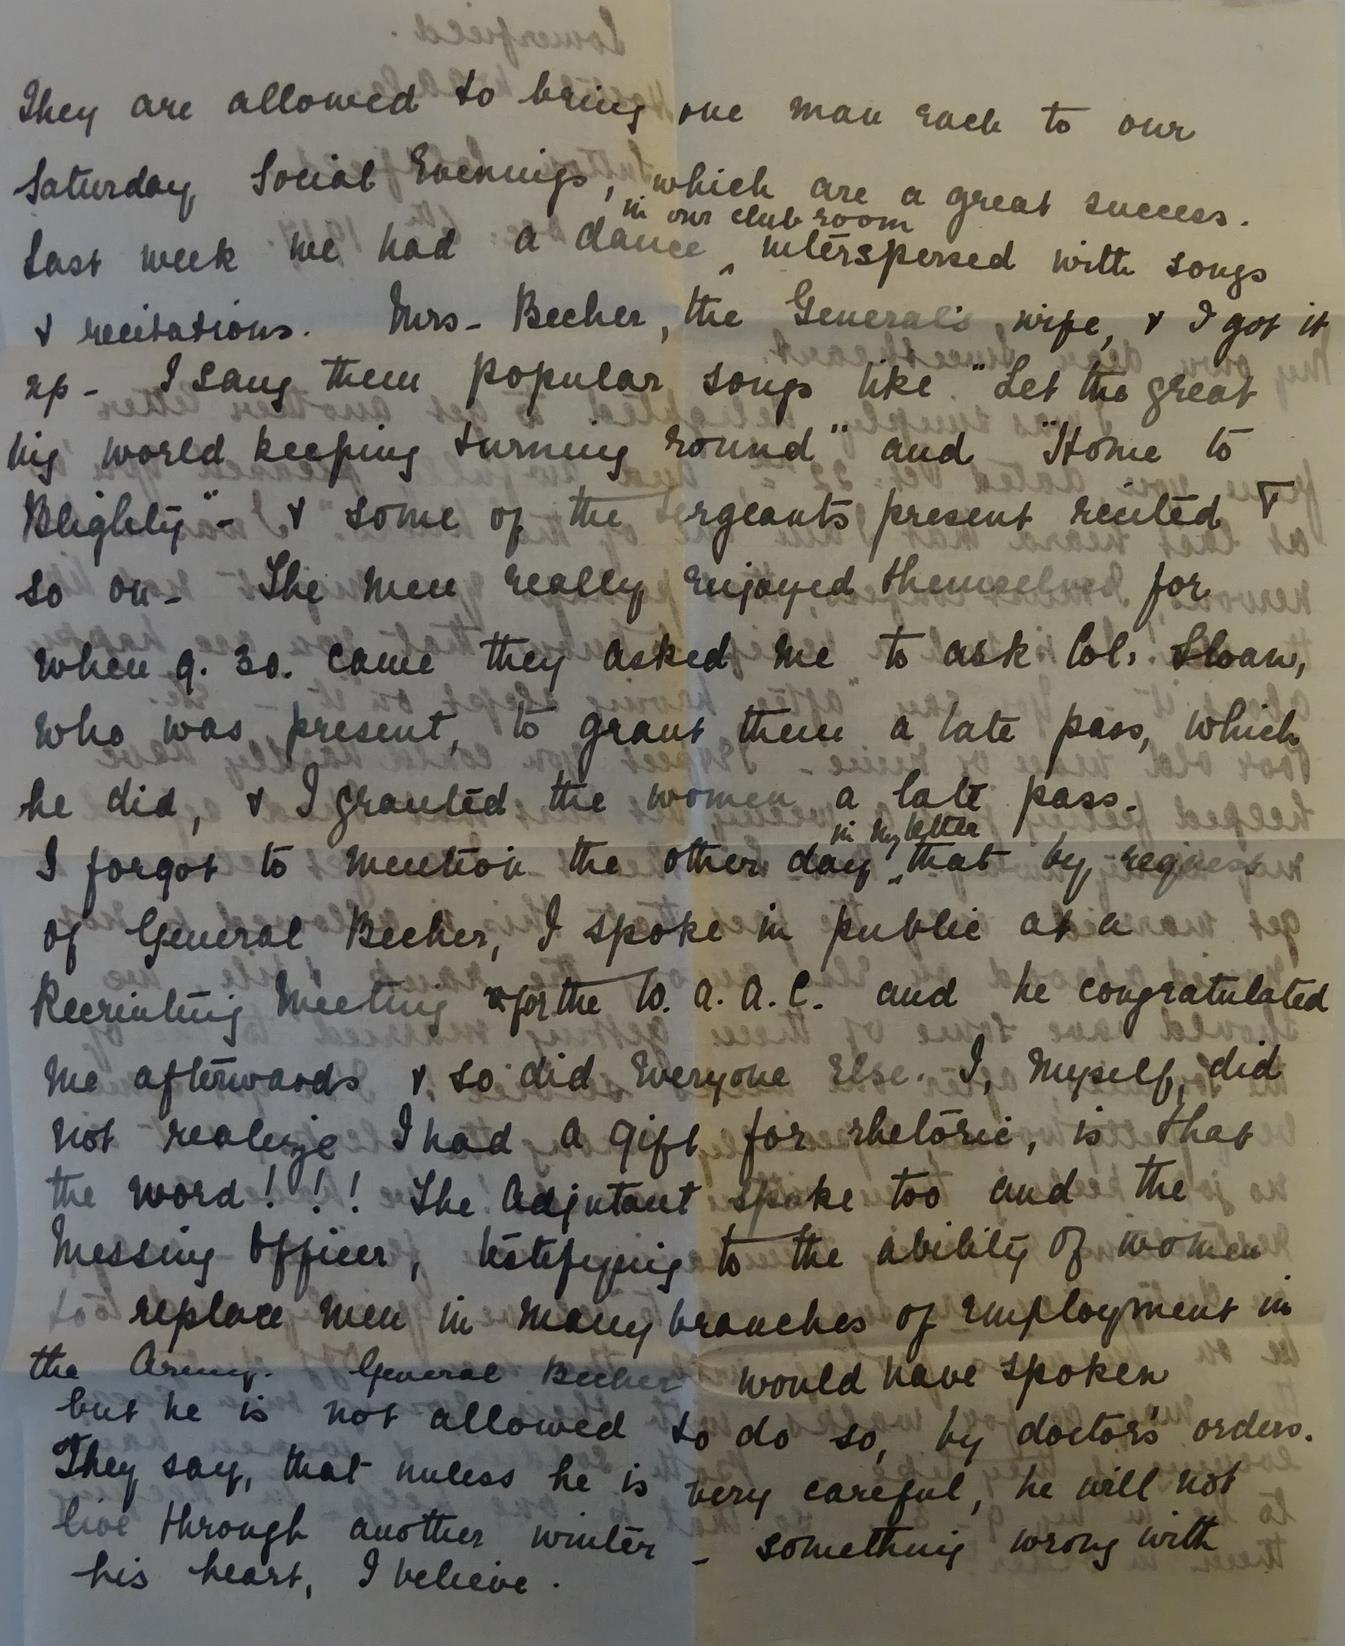 They are allowed to bring one man each to our
Saturday Social Evenings, which are a great success.
in our club room
Last week we had a dance ‸ interspersed with songs
& recitations. Mrs- Becher, the General's wife, & I got it
up- I sang them popular songs like "Let the great
big world keeping turning round" and "Home to
Blighty"- & some of the sergeants present recited &
so on- The men really enjoyed themselves for
when 9.30. came they asked me to ask Col. Sloan,
who was present, to grant them a late pass, which
he did, & I granted the women a late pass.
in my letter
I forgot to mention the other day ‸ that by request
of General Becher, I spoke in public at a
Recruiting Meeting for the W.A.A.C. and he congratulated
me afterwards & so did everyone else. I, myself, did
not realize I had a gift for rhetoric, is that
the word! ! ! The Adjutant spoke too and the
Messing Officer, testifying to the ability of women
replace men in many branches of employment in
the Army. General Becher would have spoken
but he is not allowed to do so, by doctor's orders.
They say, that unless he is very careful, he will not
live through another winter - something wrong with
his heart, I believe.